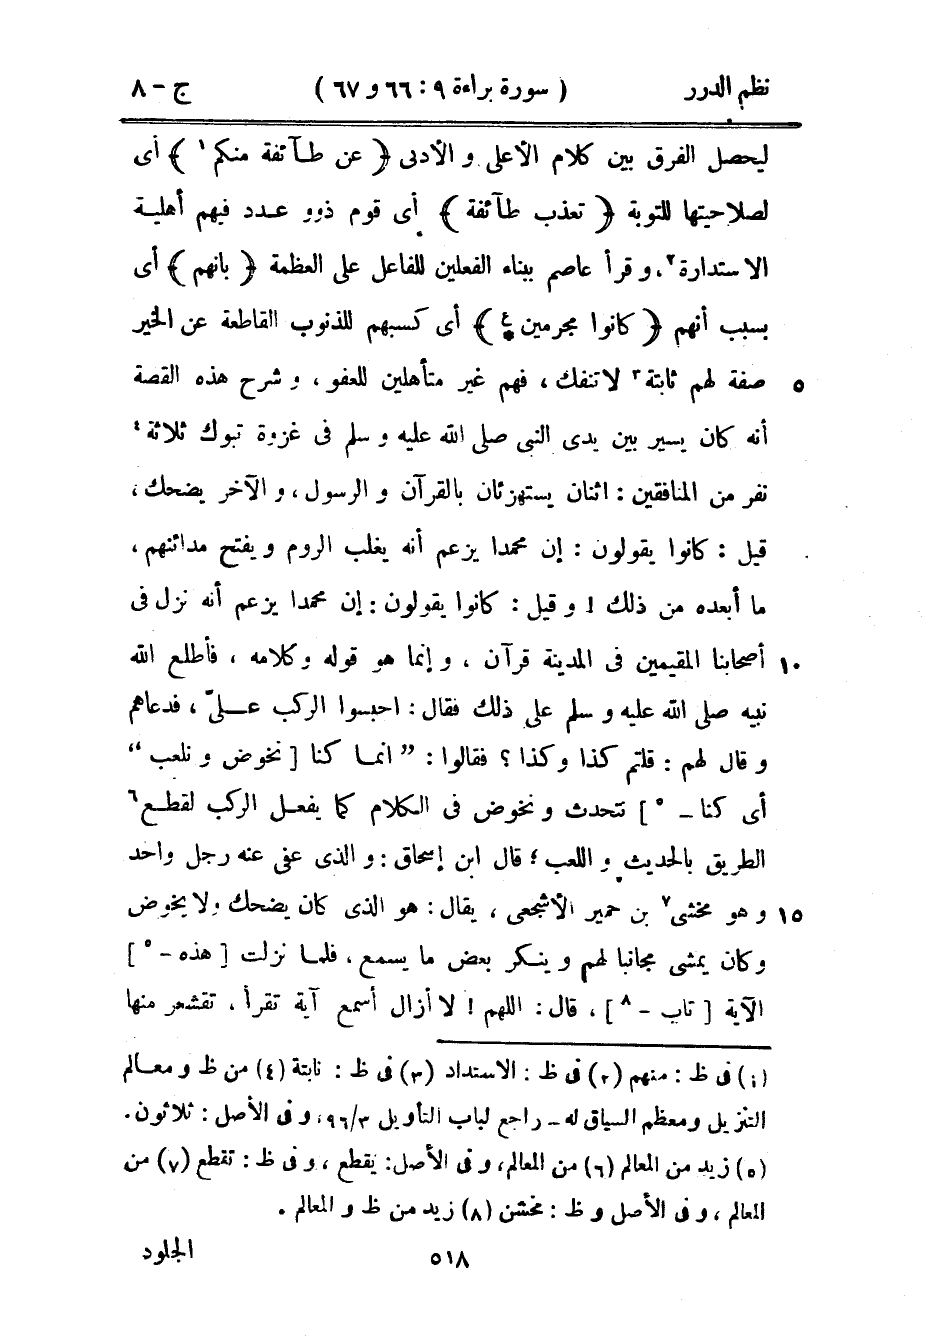 نظم الدرر ( سورة براءة ٩ : ٦٦ و ٦٧ ) ج - ٨
ليحصل الفرق بين كلام الأعلى و الأدنى ﴿ عن طآئفة منكم١ ﴾ أى
لصلاحيتها للتوبة ﴿ تعذب طآئفة ﴾ أى قوم ذوو عدد فيهم أهلية
الاستدارة٢، و قرأ عاصم ببناء الفعلين للفاعل على العظمة ﴿ بانهم ﴾ أى
بسبب أنهم ﴿ كانوا مجرمين ع ﴾ أى كسبهم للذنوب القاطعة عن الخير
٥ صفة لهم ثابتة٣ لا تنفك ، فهم غير متأهلين للعفو ، و شرح هذه القصة
أنه كان يسير بين يدى النبى صلى الله عليه و سلم فى غزوة تبوك ثلاثة٤
نفر من المنافقين : اثنان يستهزئان بالقرآن و الرسول ، و الآخر يضحك ،
قيل : كانوا يقولون : إن محمدا يزعم أنه يغلب الروم و يفتح مدائنهم ،
ما أبعده من ذلك ! و قيل : كانوا يقولون : إن محمدا يزعم أنه نزل فى
١٠ أصحابنا المقيمين فى المدينة قرآن ، و إنما هو قوله و كلامه ، فأطلع الله
نبيه صلى الله عليه و سلم على ذلك فقال : احبسوا الركب علىّ ، فدعاهم
و قال لهم : قلتم كذا و كذا ؟ فقالوا : ” انما كنا [ نخوض و نلعب “
أى كنا - ٥ ] نتحدث و نخوض فى الكلام كما يفعل الركب لقطع٦
الطريق بالحديث و اللعب ؛ قال ابن إسحاق : و الذى عفى عنه رجل واحد
١٥ و هو مخشى٧ بن حمير الأشجعى ، يقال : هو الذى كان يضحك و لا يخوض
و كان يمشى مجانبا لهم و ينكر بعض ما يسمع ، فلما نزلت [ هذه - ٥ ]
الآية [ تاب - ٨ ] ، قال : اللهم ! لا أزال أسمع آية تقرأ ، تقشعر منها
(١) فى ظ : منهم (٢) فى ظ : الاستداد (٣) فى ظ : نابتة (٤) من ظ و معالم
التنزيل و معظم السياق له - راجع لباب التأويل ٩٦/٣، و فى الأصل : ثلاثون .
(٥) زيد من المعالم (٦) من المعالم، و فى الأصل: يقطع ، و فى ظ : تقطع (٧) من
المعالم ، و فى الأصل و ظ : مخشن (٨) زيد من ظ و المعالم .
٥١٨ الجلود